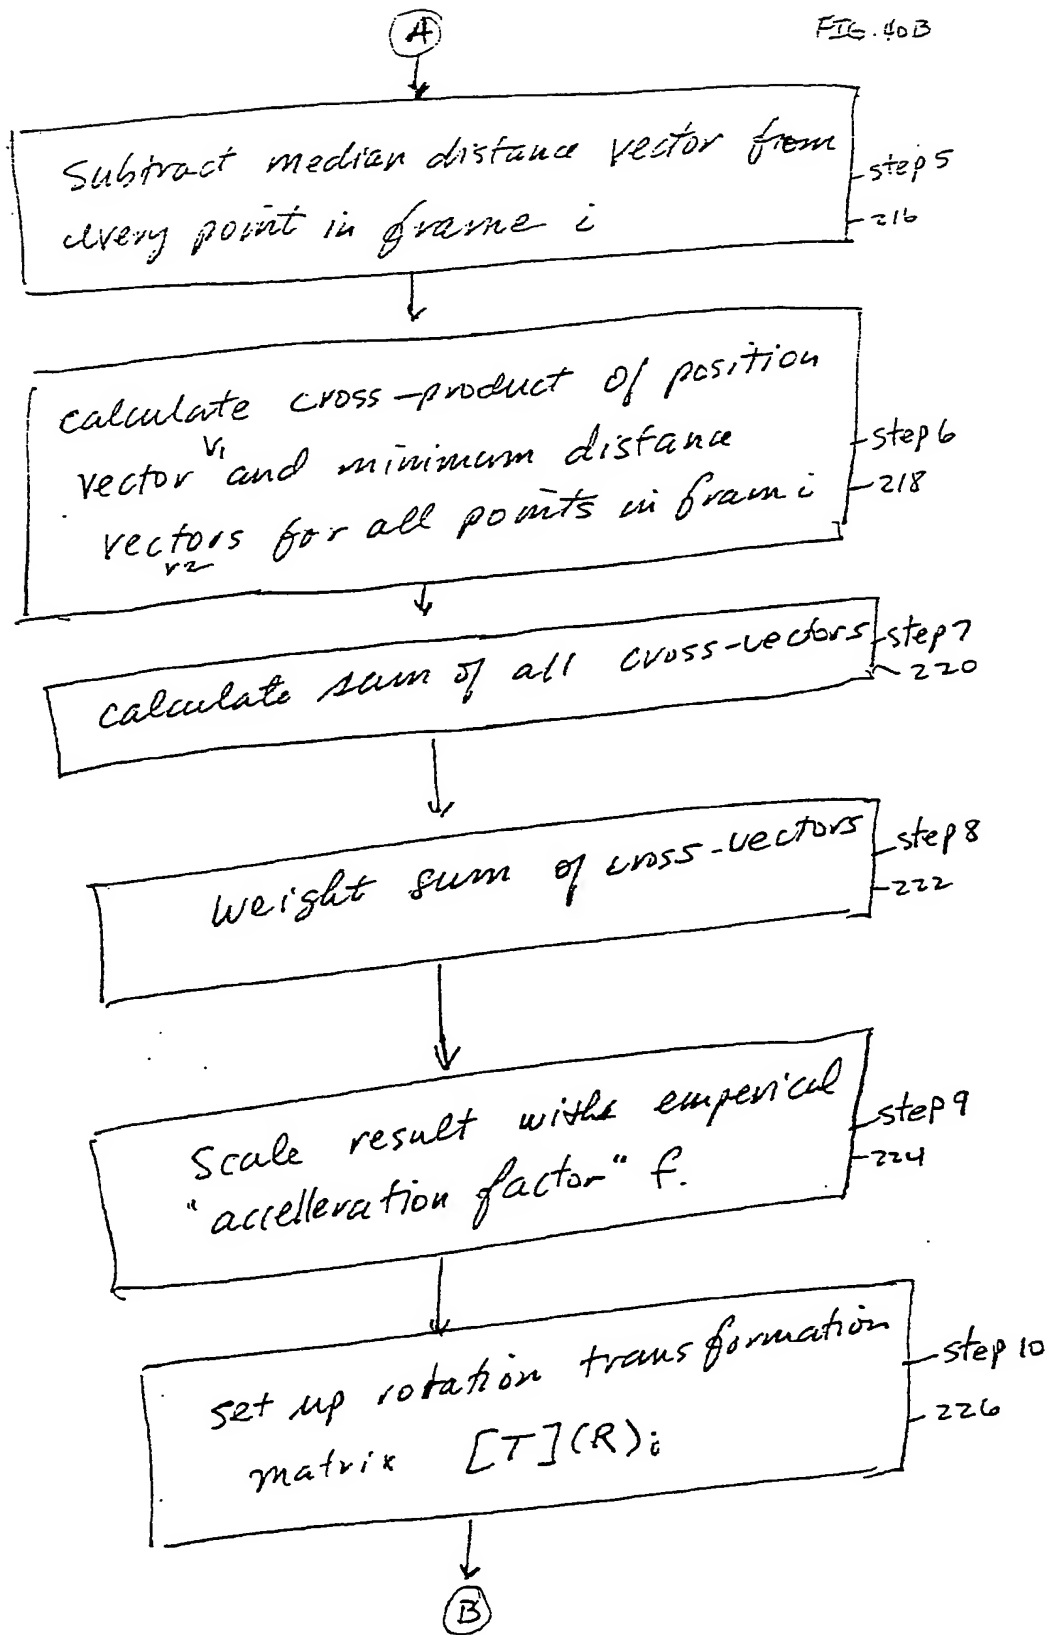 FIG. 40B
A
Subtract median distance vector from
every point in frame i
step 5
216
calculate cross-product of position
vector v1 and minimum distance
vectors for all points in fram i
v2
step 6
218
calculate sum of all cross-vectors
step 7
220
weight sum of cross-vectors
step 8
222
Scale result with emperical
"accelleration factor" f.
step 9
224
set up rotation transformation
matrix [T](R)i
step 10
226
B